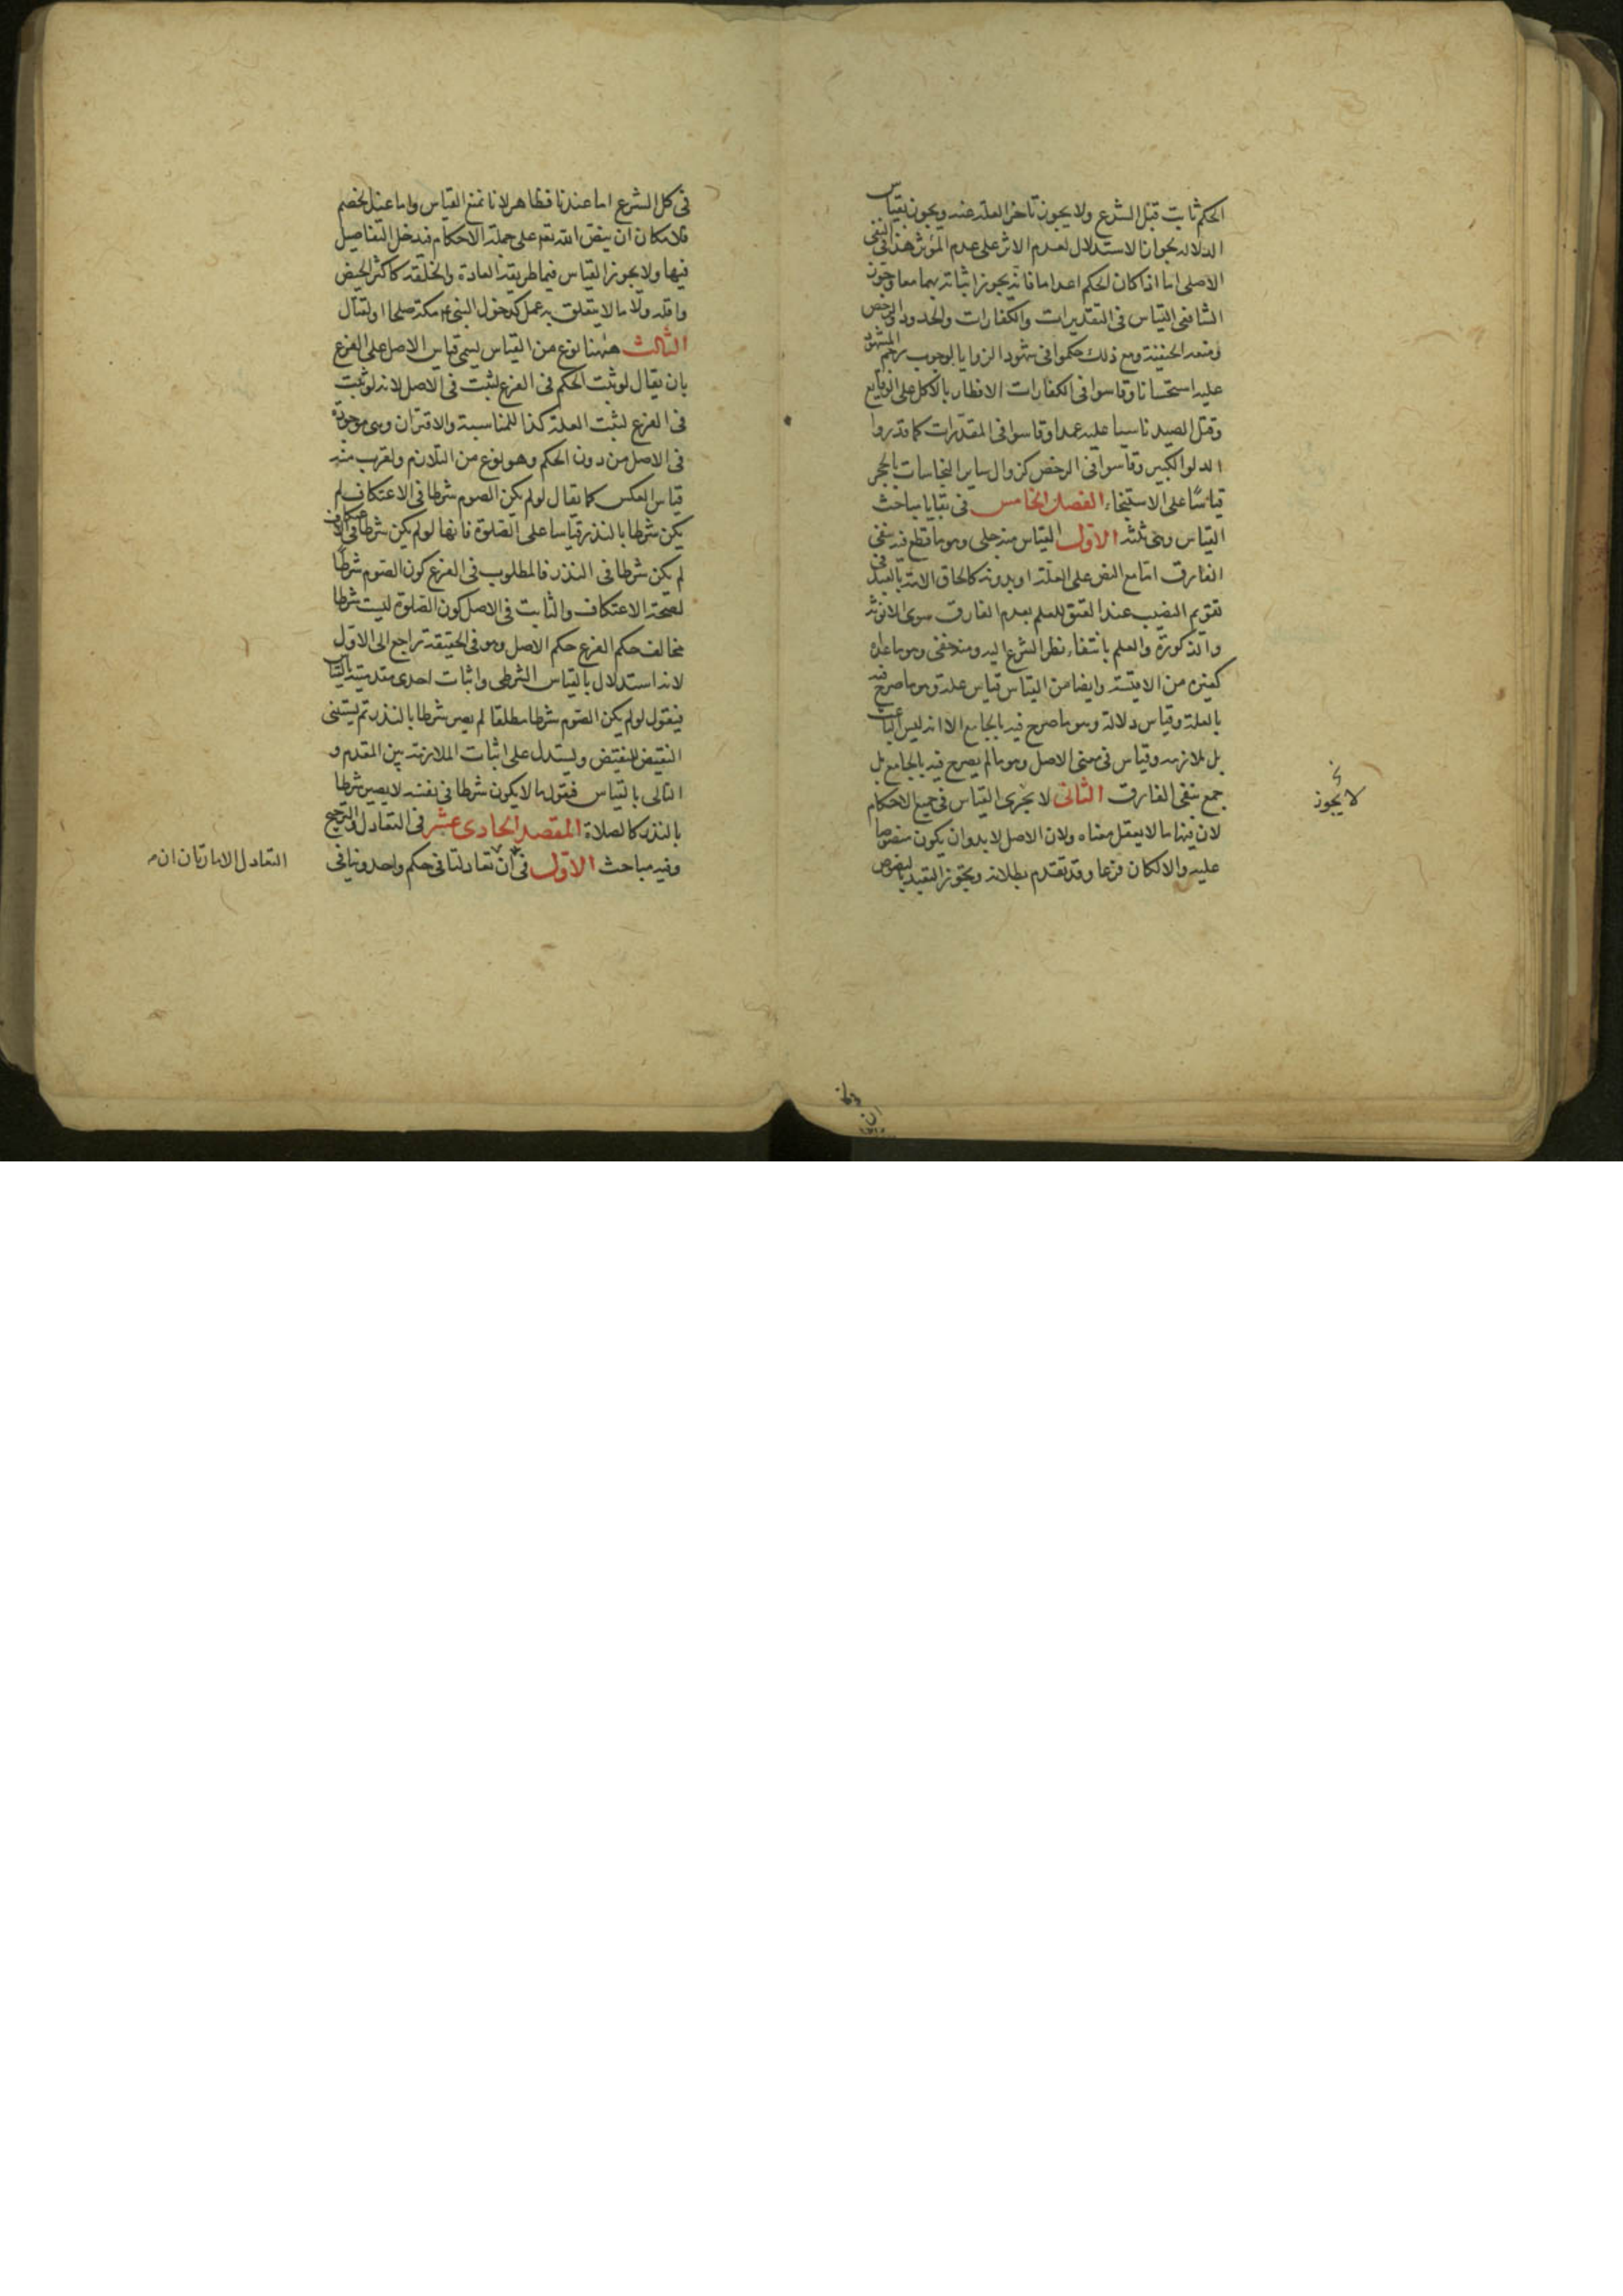 الحكم ثابت قبل الشرع ولا يجوز تأخر العلة عنه ويجوز بقياس
الدلالة بجواز الاستدلال بعدم الاثر على عدم المؤثر هذا في النفى
الاصلى اما اذا كان الحكم اعداما فانه يجوز اثباته بهما معا وجوز
الشافعى القياس فى التقديرات والكفارات والحدود والرخص
ومنعه الحنفية ومع ذلك حكموا فى شهود الزوايا بوجوب رجم المشهود
عليه استحسانا وقاسوا فى الكفارات الافطار بالاكل على الوقاع
وقتل الصيد ناسيا عليه عمدا وقاسوا فى المقدرات كما قدروا
الدلو الكبير وقاسوا فى الرخص كزوال ساير النجاسات بالحجر
قياسا على الاستنجاء الفصل الخامس فى بقايا مباحث
القياس وهى ثلثة الاول القياس منه جلى وهو ما قطع فيه بنفى
الفارق اما مع النص على العلة او بدونه كالحاق الامة بالعبد فى
تقويم النصيب عند العتق للعلم بعدم الفارق سوى الانوثة
والذكورة والعلم بانتفاء نظر الشرع اليه ومنه خفى وهو ما عداه
كغيره من الاقيسة وايضا من القياس قياس علة وهو ما صرح فيه
بالعلة وقياس دلالة وهو ما صرح فيه بالجامع الا انه ليس الباعث
بل ملازمه وقياس فى معنى الاصل وهو ما لم يصرح فيه بالجامع بل
جمع بنفى الفارق الثانى لا يجرى القياس فى جميع الاحكام
لان فيها ما لا يعقل معناه ولان الاصل لا بد وان يكون منصوصا
عليه والا لكان فرعا وقد تقدم بطلانه ويجوز التعبد بالنصوص
لا يجوز
فى كل الشرع اما عندنا فظاهر لانا نمنع القياس واما عند الخصم
فلامكان ان ينص الله تعه على جملة الاحكام فيدخل التفاصيل
فيها ولا يجوز القياس فيما طريقه العادة والخلقة كاكثر الحيض
واقله ولا ما لا يتعلق به عمل كدخول النبى ع مكة صلحا او لقتال
الثالث ههنا نوع من القياس يسمى قياس الاصل على الفرع
بان يقال لو ثبت الحكم فى الفرع لثبت فى الاصل لانه لو ثبت
فى الفرع لثبت العلة كذا للمناسبة والاقتران وهى موجودة
فى الاصل من دون الحكم وهو نوع من التلازم ولقرب منه
قياس العكس كما يقال لو لم يكن الصوم شرطا فى الاعتكاف لم
يكن شرطا بالنذر قياسا على الصلوة فانها لو لم يكن شرطا فى الاعتكاف
لم يكن شرطا فى النذر فالمطلوب فى الفرع كون الصوم شرطا
لصحة الاعتكاف والثابت فى الاصل كون الصلوة ليست شرطا
مخالف حكم الفرع حكم الاصل وهو فى الحقيقة راجع الى الاول
لانه استدلال بالقياس الشرطى واثبات احدى مقدمتيه بالقياس
فيقول لو لم يكن الصوم شرطا مطلقا لم يصر شرطا بالنذر ثم يستثنى
النقيض للنقيض ويستدل على اثبات الملازمة بين المقدم و
التالى بالقياس فيقول ما لا يكون شرطا فى نفسه لا يصير شرطا
بالنذر كالصلاة المقصد الحادى عشر فى التعادل والترجيح
وفيه مباحث الاول فى ان تعادلتا فى حكم واحد وتنافى
التعادل الامارتان ان